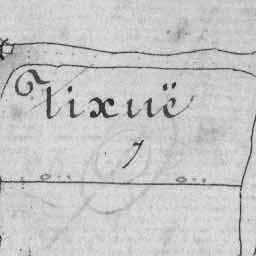 Tixuë
7